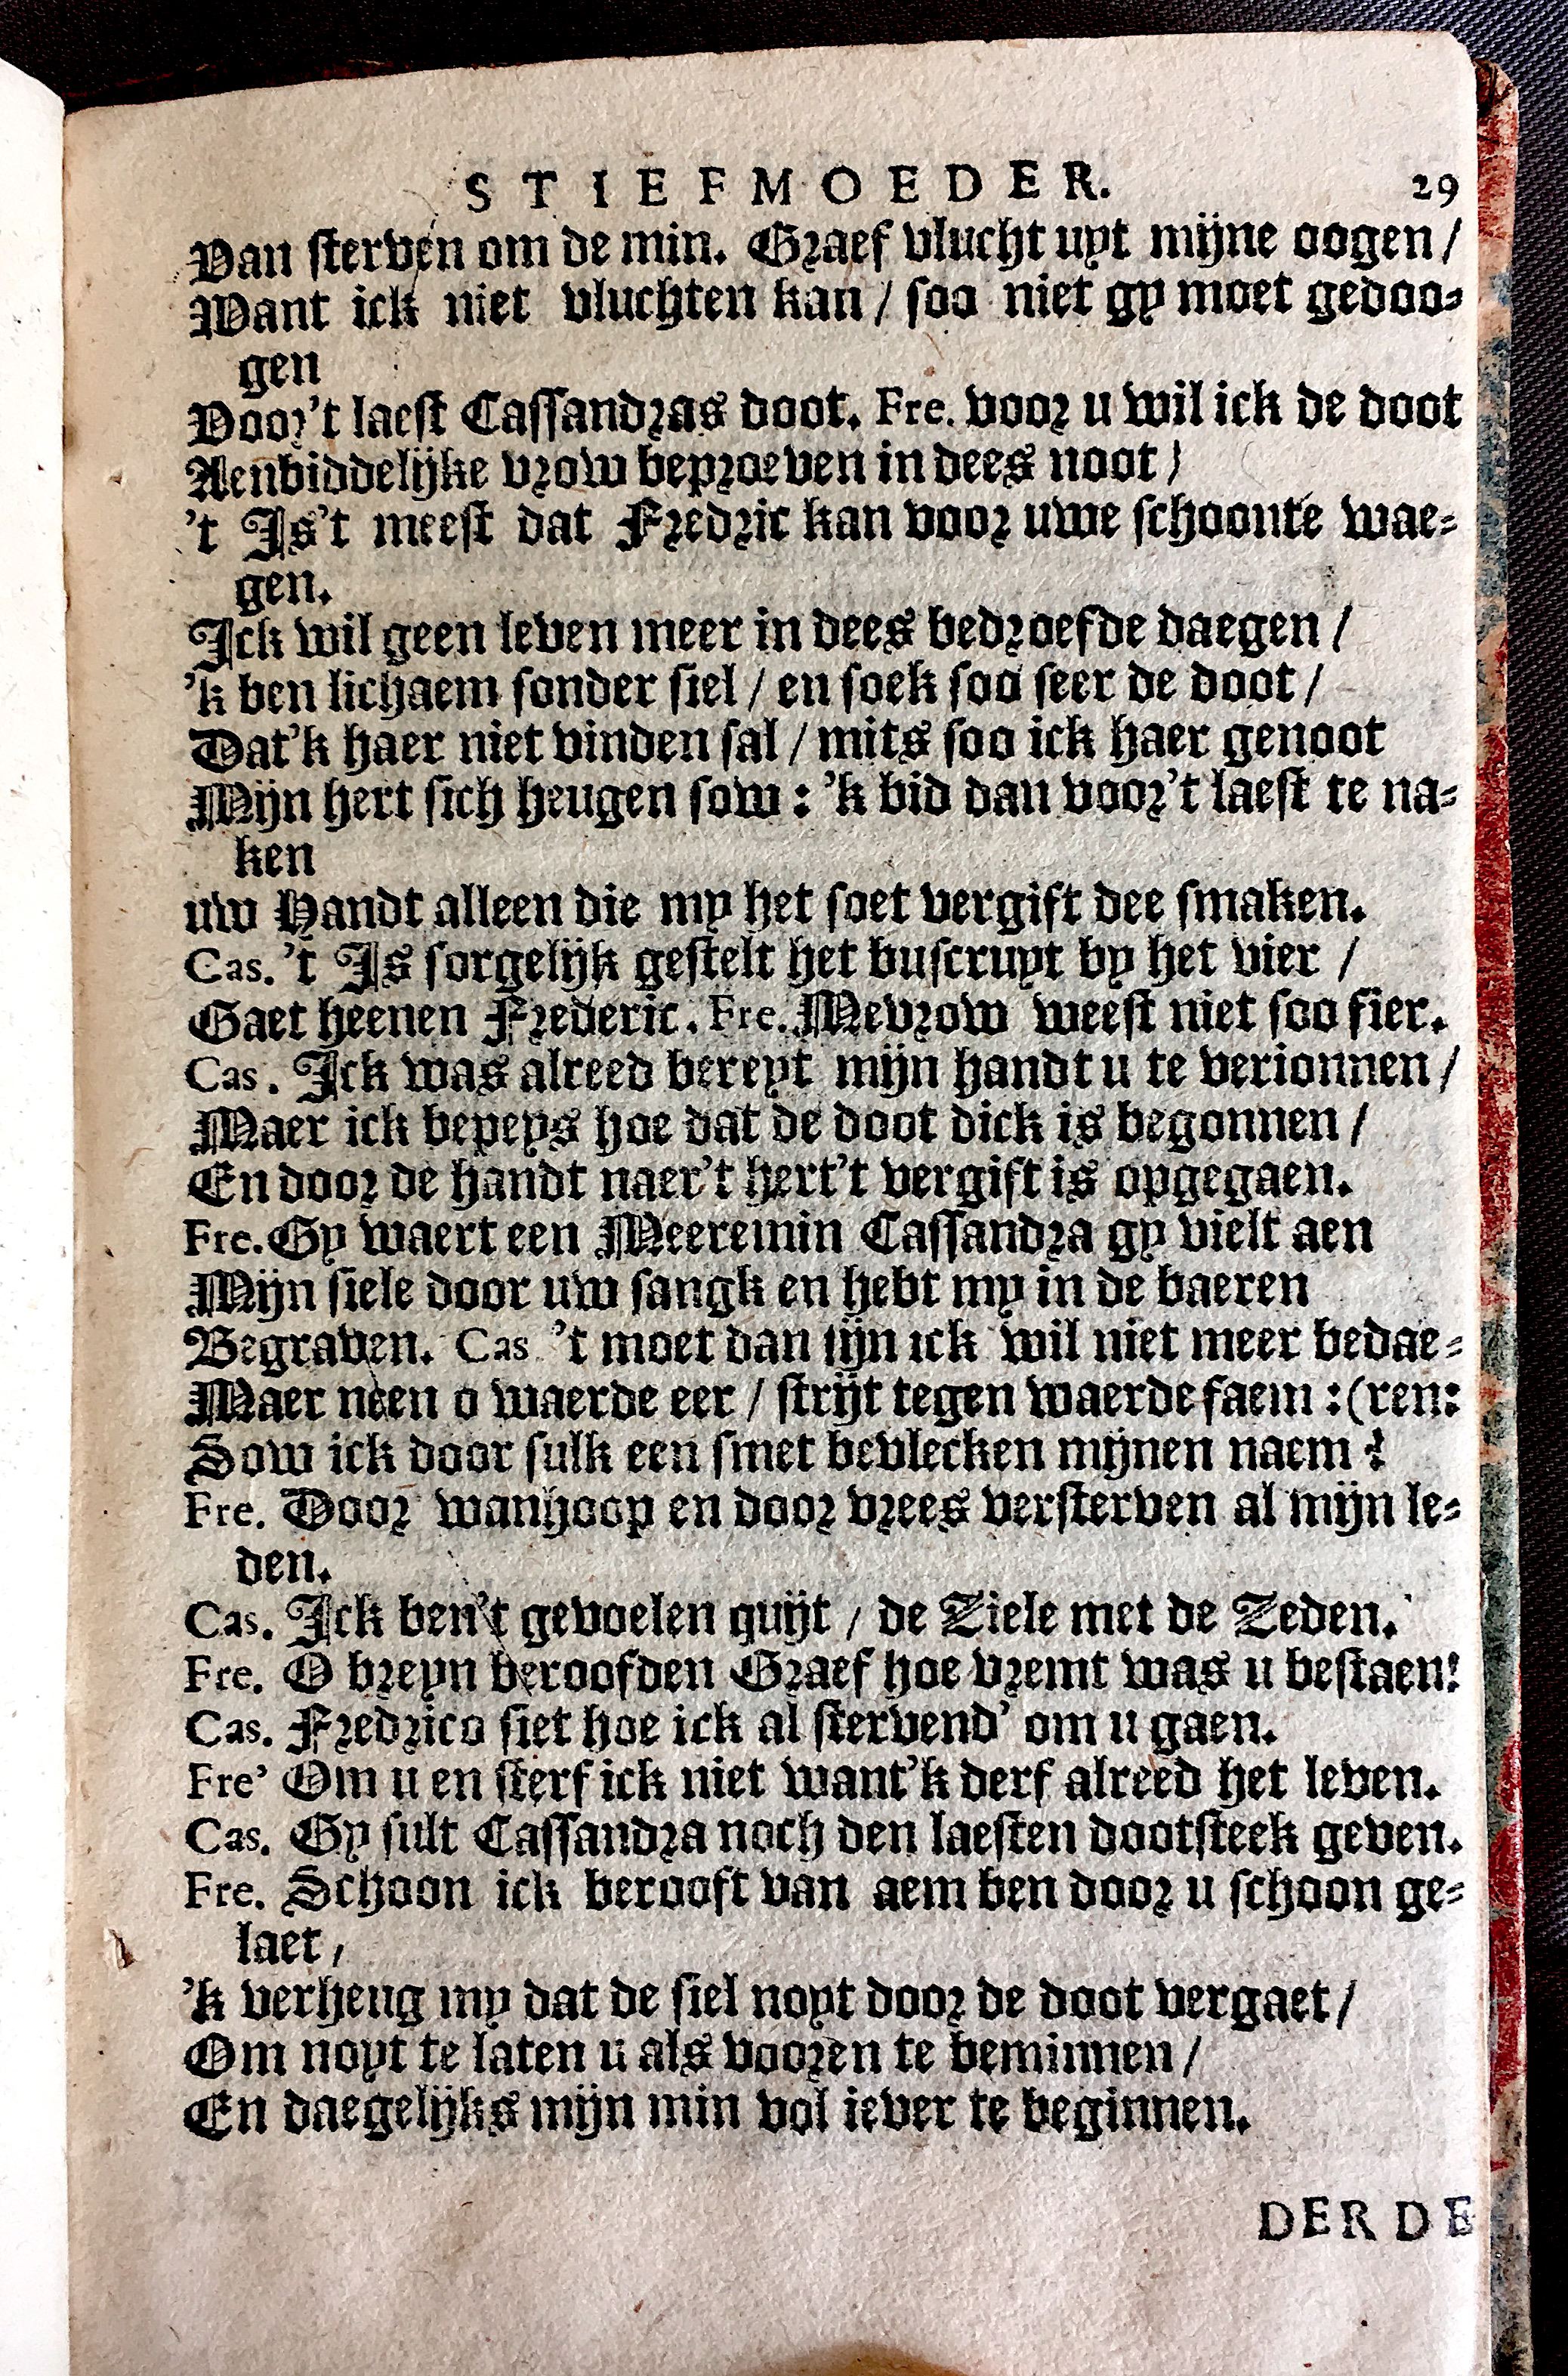 STIEFMOEDER. 29
Van sterven om de min. Graef vlucht uyt mijne oogen/
Want ick niet vluchten kan/ soo niet gy moet gedoo-
gen
Voor't laest Cassandras doot. Fre. voor u wil ick de doot
Aenbiddelijke vrow beproeven in dees noot/
't Is't meest dat Fredric kan voor uwe schoonte wae-
gen.
Ick wil geen leven meer in dees bedroefde daegen/
'k ben lichaem sonder siel/ en soek soo seer de doot/
Dat'k haer niet vinden sal/ mits soo ick haer genoot
Mijn hert sich heugen sow: 'k bid dan voor't laest te na-
ken
uw Handt alleen die my het soet vergift dee smaken.
Cas. 't Is sorgelijk gestelt het buscruyt by het vier/
Gaet heenen Frederic. Fre. Mevrow weest niet soo fier.
Cas. Ick was alreed bereyt mijn handt u te verionnen/
Maer ick bepeys hoe dat de doot dick is begonnen/
En door de handt naer't hert't vergift is opgegaen.
Fre. Gy waert een Meeremin Cassandra gy vielt aen
Mijn siele door uw sangk en hebt my in de baeren
Begraven. Cas. 't moet dan sijn ick wil niet meer bedae-
Maer neen o waerde eer/ strijt tegen waerde faem: (ren:
Sow ick door sulk een smet bevlecken mijnen naem?
Fre. Door wanhoop en door vrees versterven al mijn le-
den.
Cas. Ick ben't gevoelen quijt/ de Ziele met de Zeden.
Fre. O breyn beroofden Graef hoe vremt was u bestaen!
Cas. Fredrico siet hoe ick al stervend' om u gaen.
Fre' Om u en sterf ick niet want'k derf alreed het leven.
Cas. Gy sult Cassandra noch den laesten dootsteek geven.
Fre. Schoon ick berooft van aem ben door u schoon ge-
laet,
'k verheug my dat de siel noyt door de doot vergaet/
Om noyt te laten u als vooren te beminnen/
En daegelijks mijn min vol iever te beginnen.
DERDE